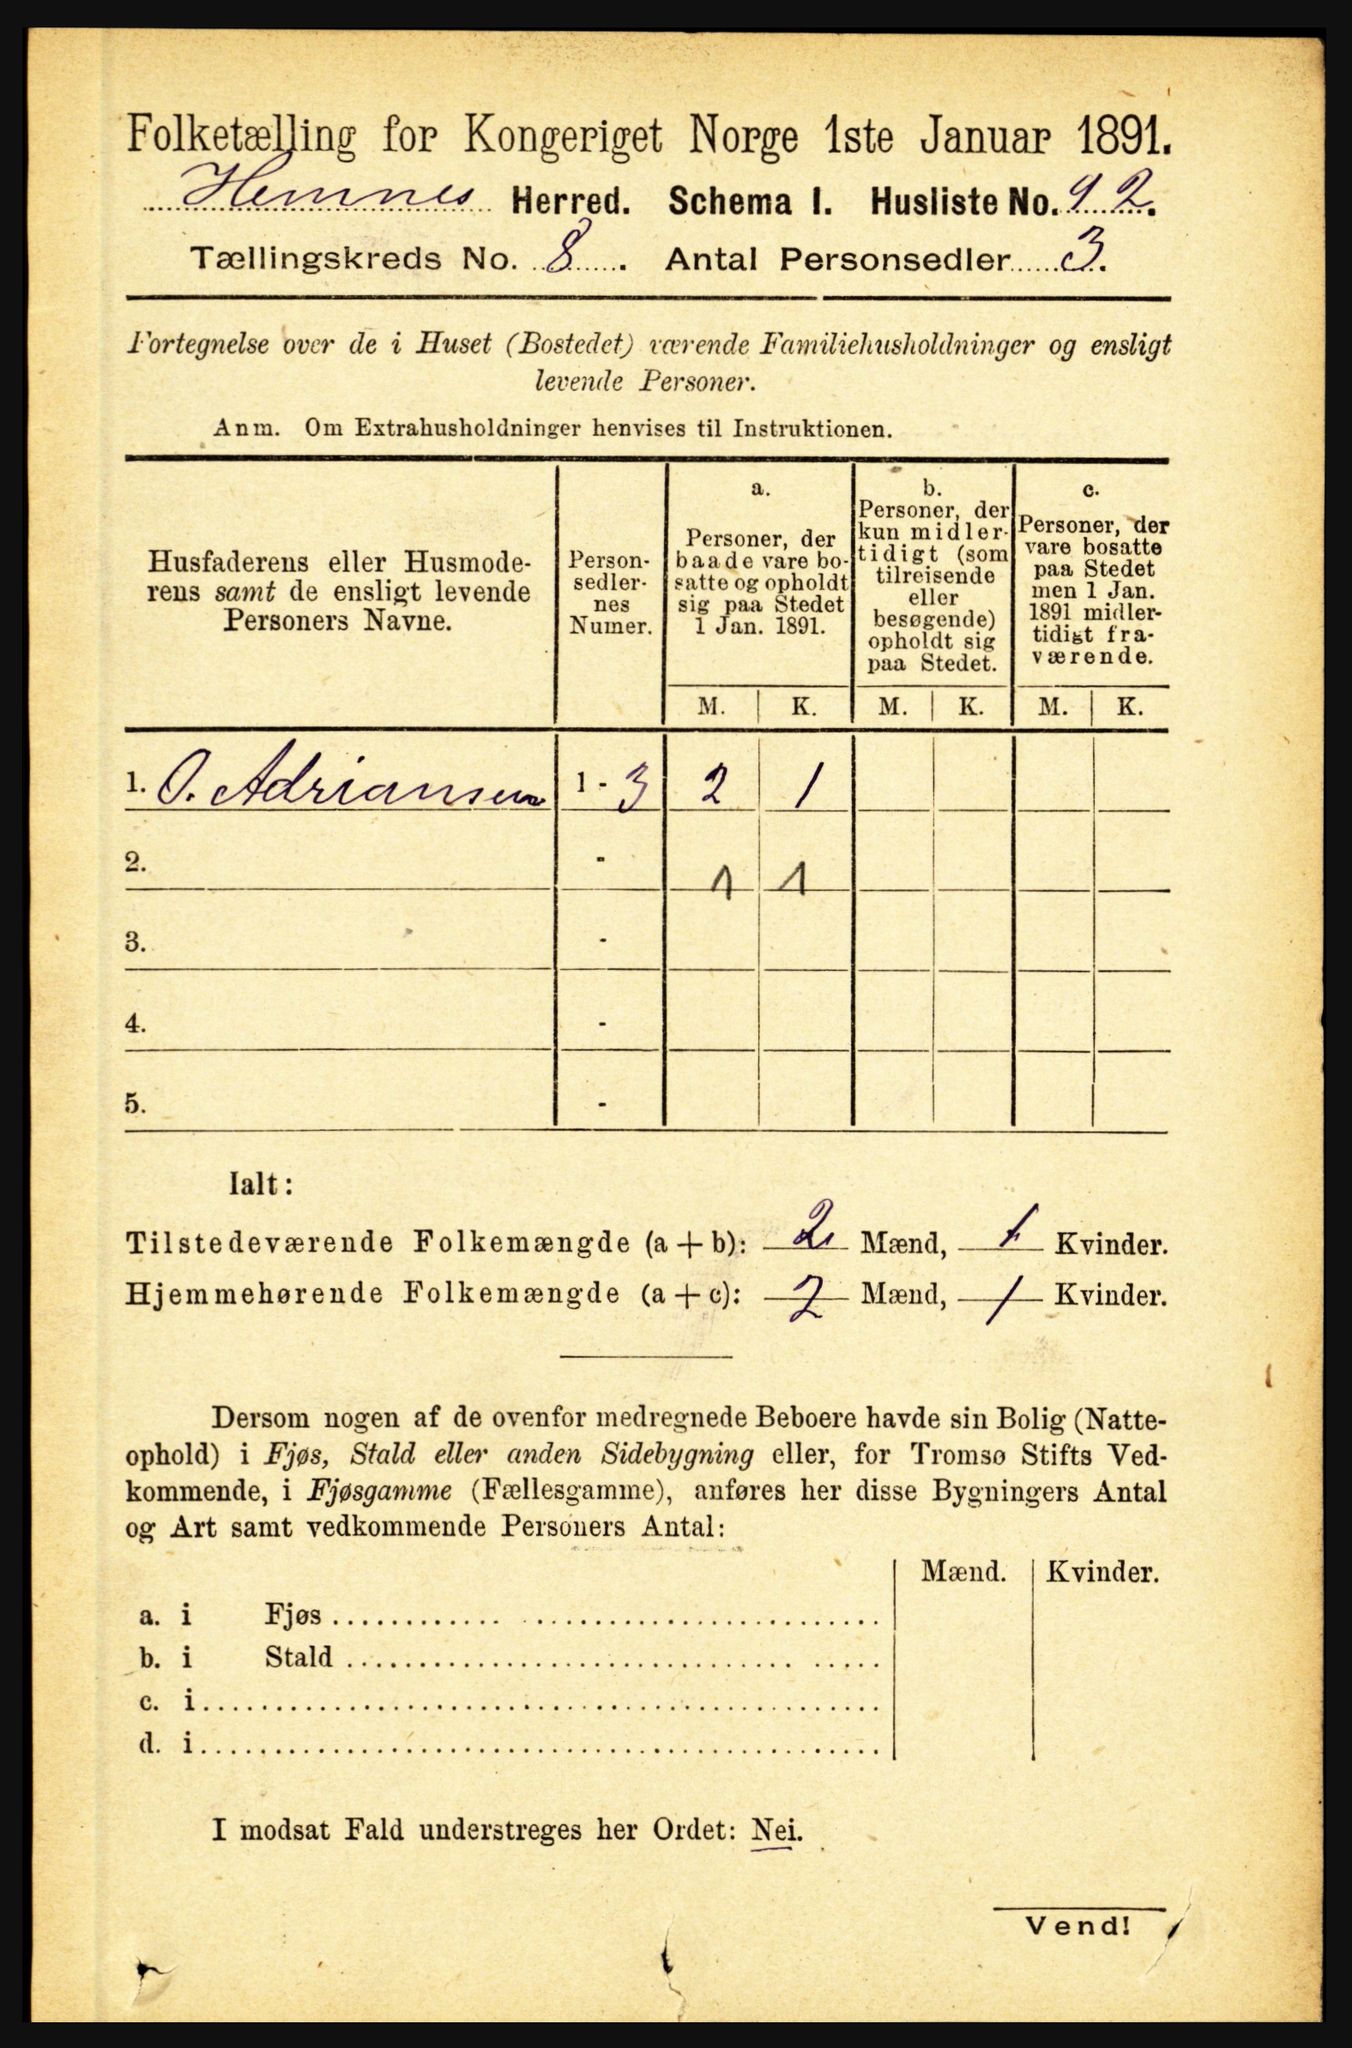 Folketælling for Kongeriget Norge 1ste Januar 1891.
Hemnes Herred. Schema I. Husliste No. 92.
Tællingskreds No. 8. Antal Personsedler 3.
Fortegnelse over de i Huset (Bostedet) værende Familiehusholdninger og ensligt
levende Personer.
Anm. Om Extrahusholdninger henvises til Instruktionen.
Husfaderens eller Husmode-
rens samt de ensligt levende
Personers Navne.
Person-
sedler-
nes
Numer.
a.
Personer, der
baade vare bo-
satte og opholdt
sig paa Stedet
1 Jan. 1891.
b.
Personer, der
kun midler-
tidigt (som
tilreisende
eller
besøgende)
opholdt sig
paa Stedet.
c.
Personer, der
vare bosatte
paa Stedet
men 1 Jan.
1891 midler-
tidigt fra-
værende.
M. K. M. K. M. K.
1. O. Adriansen 1 - 3 2 1
2. - 1 1
3. -
4. -
5. -
Ialt:
Tilstedeværende Folkemængde (a + b): 2 Mænd, 1 Kvinder.
Hjemmehørende Folkemængde (a + c): 2 Mænd, 1 Kvinder.
Dersom nogen af de ovenfor medregnede Beboere havde sin Bolig (Natte-
ophold) i Fjøs, Stald eller anden Sidebygning eller, for Tromsø Stifts Ved-
kommende, i Fjøsgamme (Fællesgamme), anføres her disse Bygningers Antal
og Art samt vedkommende Personers Antal:
Mænd. Kvinder.
a. i Fjøs
b. i Stald
c. i
d. i
I modsat Fald understreges her Ordet: Nei.
Vend!